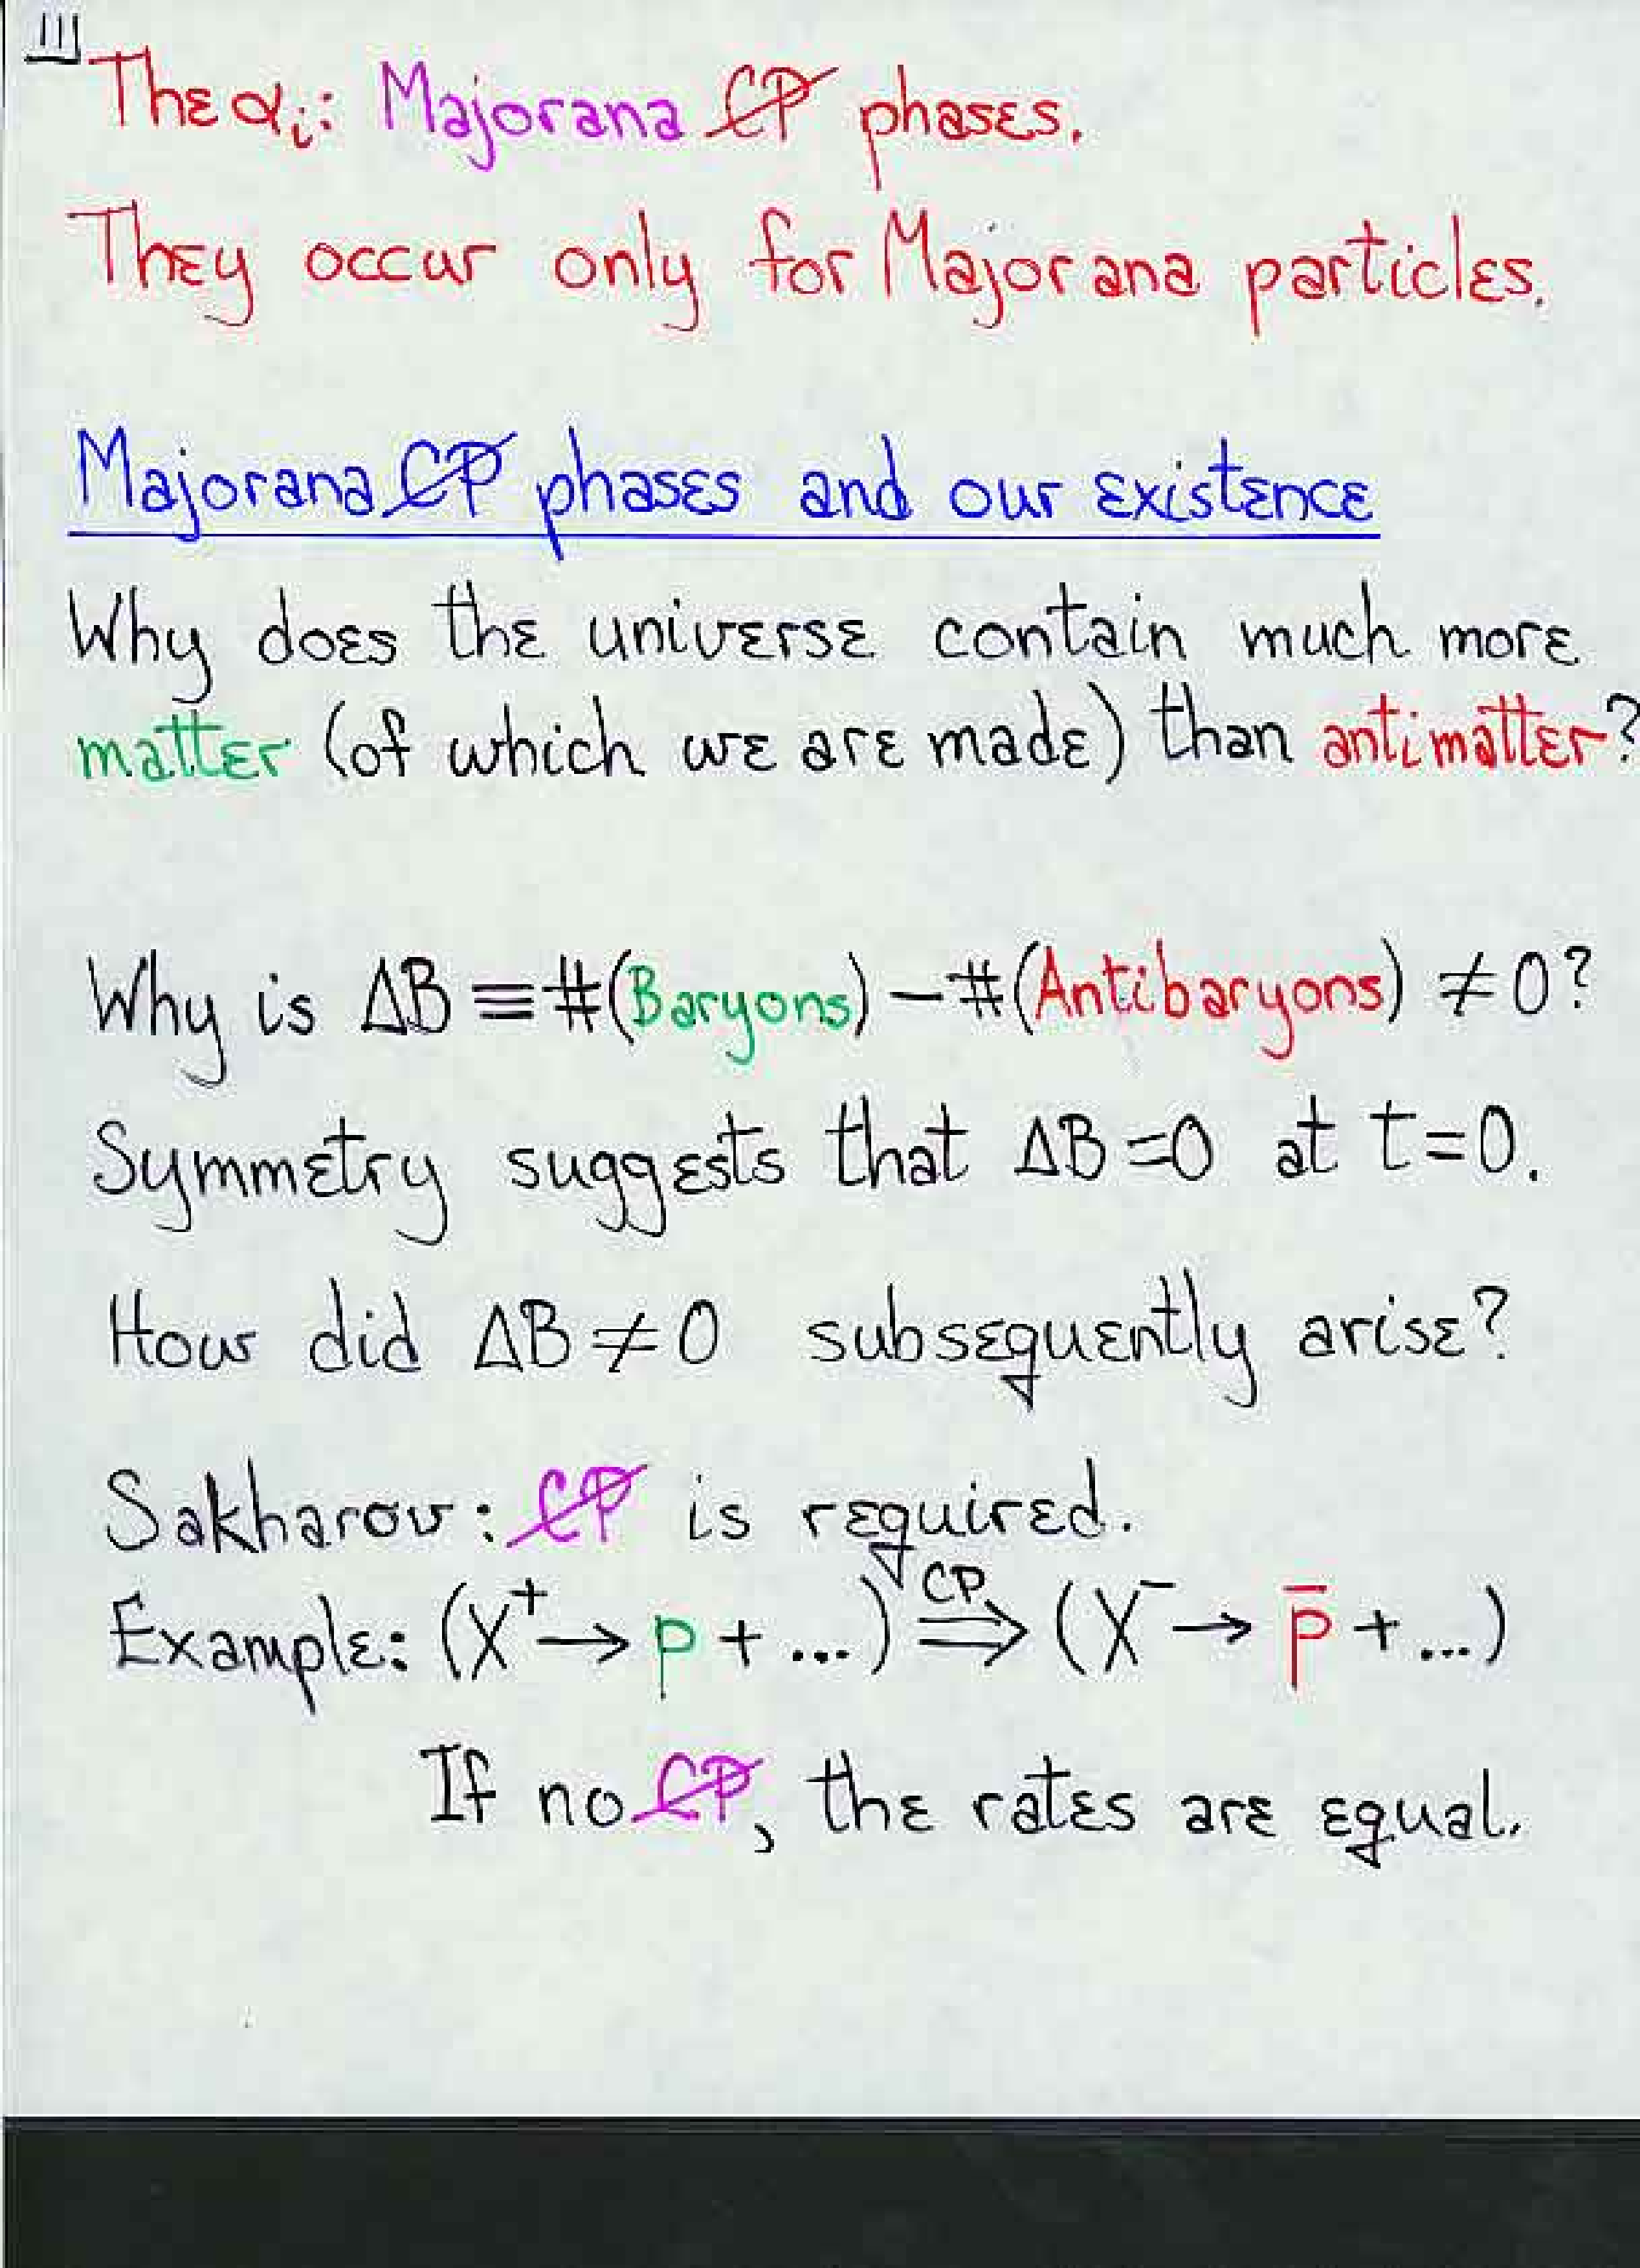 111
The αᵢ: Majorana C̸P̸ phases.
They occur only for Majorana particles.
Majorana C̸P̸ phases and our existence
Why does the universe contain much more
matter (of which we are made) than antimatter?
Why is ΔB ≡ #(Baryons) – #(Antibaryons) ≠ 0?
Symmetry suggests that ΔB = 0 at t = 0.
How did ΔB ≠ 0 subsequently arise?
Sakharov: C̸P̸ is required.
Example: (X⁺ → p + ...) ⟹ᶜᴾ (X⁻ → p̄ + ...)
If no C̸P̸, the rates are equal.